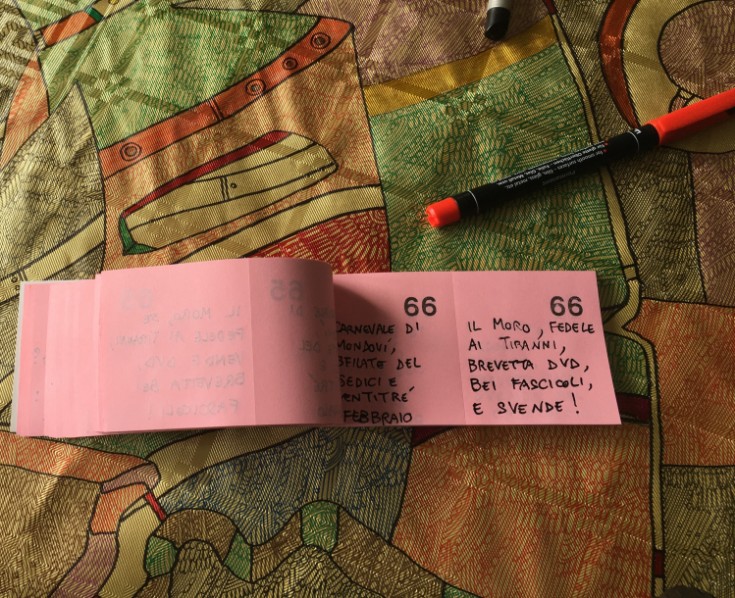 66
CARNEVALE DI
MONDOVÍ,
SFILATE DEL
SEDICI E
ENTITRÉ
FEBBRAIO
66
IL MORO, FEDELE
AI TIRANNI,
BREVETTA DVD,
BEI FASCICOLI,
E SVENDE!